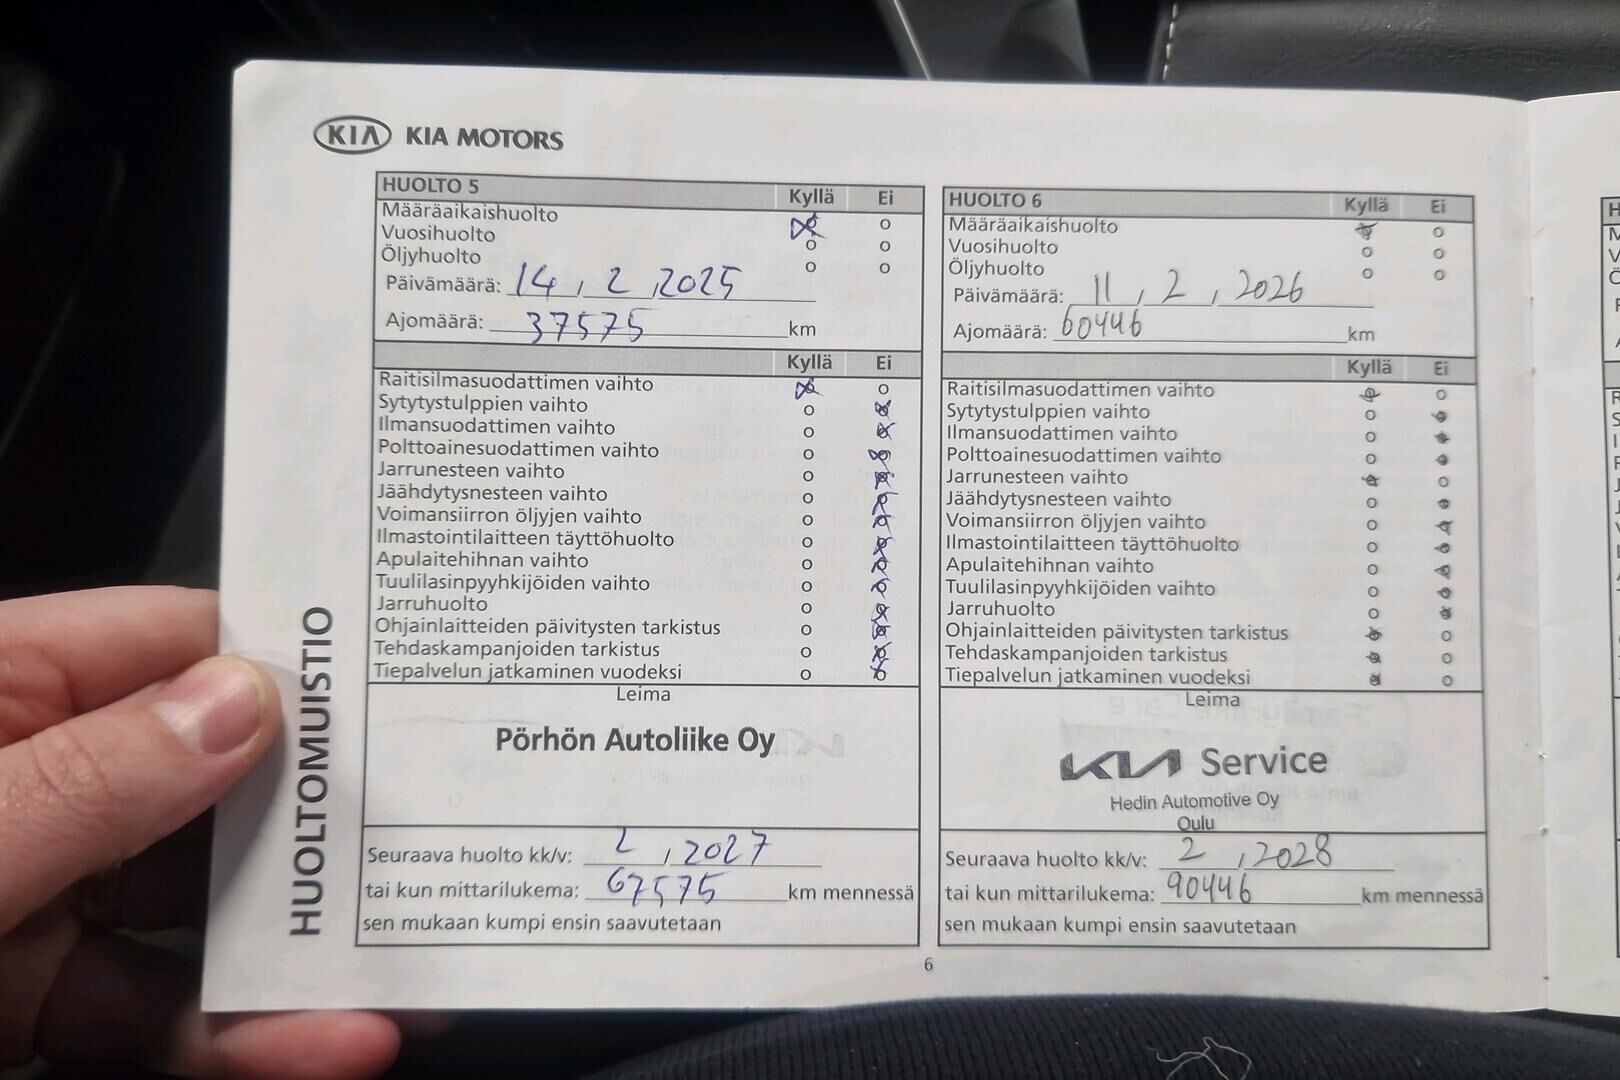 KIA KIA MOTORS
HUOLTOMUISTIO
HUOLTO 5 Kyllä Ei
Määräaikaishuolto
Vuosihuolto
Öljyhuolto
Päivämäärä: 14 , 2 , 2025
Ajomäärä: 37575 km
Kyllä Ei
Raitisilmasuodattimen vaihto
Sytytystulppien vaihto
Ilmansuodattimen vaihto
Polttoainesuodattimen vaihto
Jarrunesteen vaihto
Jäähdytysnesteen vaihto
Voimansiirron öljyjen vaihto
Ilmastointilaitteen täyttöhuolto
Apulaitehihnan vaihto
Tuulilasinpyyhkijöiden vaihto
Jarruhuolto
Ohjainlaitteiden päivitysten tarkistus
Tehdaskampanjoiden tarkistus
Tiepalvelun jatkaminen vuodeksi
Leima
Pörhön Autoliike Oy
Seuraava huolto kk/v: 2 , 2027
tai kun mittarilukema: 67575 km mennessä
sen mukaan kumpi ensin saavutetaan
HUOLTO 6 Kyllä Ei
Määräaikaishuolto
Vuosihuolto
Öljyhuolto
Päivämäärä: 11 , 2 , 2026
Ajomäärä: 60446 km
Kyllä Ei
Raitisilmasuodattimen vaihto
Sytytystulppien vaihto
Ilmansuodattimen vaihto
Polttoainesuodattimen vaihto
Jarrunesteen vaihto
Jäähdytysnesteen vaihto
Voimansiirron öljyjen vaihto
Ilmastointilaitteen täyttöhuolto
Apulaitehihnan vaihto
Tuulilasinpyyhkijöiden vaihto
Jarruhuolto
Ohjainlaitteiden päivitysten tarkistus
Tehdaskampanjoiden tarkistus
Tiepalvelun jatkaminen vuodeksi
Leima
KIA Service
Hedin Automotive Oy
Oulu
Seuraava huolto kk/v: 2 , 2028
tai kun mittarilukema: 90446 km mennessä
sen mukaan kumpi ensin saavutetaan
6